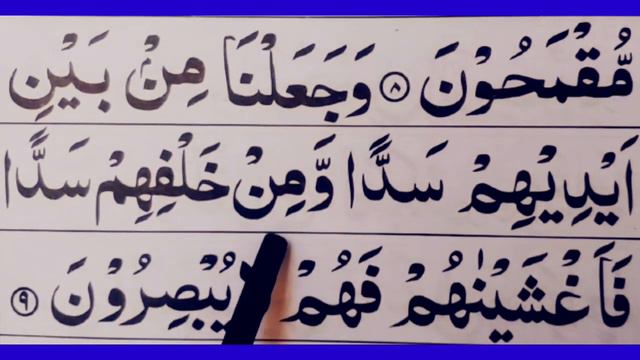 مُّقْمَحُوْنَ ۝۸ وَجَعَلْنَا مِنْۢ بَيْنِ
اَيْدِيْهِمْ سَدًّا وَّمِنْ خَلْفِهِمْ سَدًّا
فَاَغْشَيْنٰهُمْ فَهُمْ يُبْصِرُوْنَ ۝۹